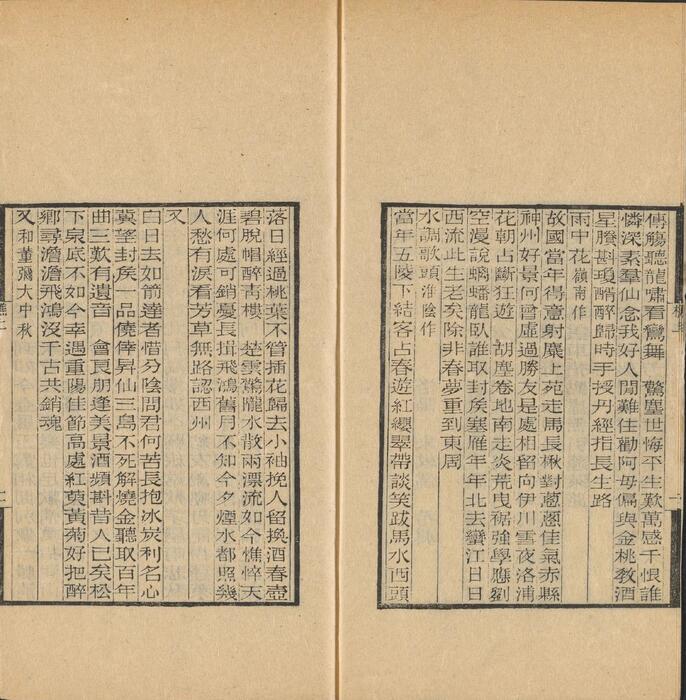 傳觴聽龍嘯看鸞舞　驚塵世悔平生歎萬感千恨誰
憐深素羣仙念我好人閒難住勸阿母偏與金桃教酒
星賸斟瓊醑醉歸時手授丹經指長生路
雨中花嶺南作
故國當年得意射麋上苑走馬長楸對蔥蔥佳氣赤縣
神州好景何曾虛過勝友是處相留向伊川雪夜洛浦
花朝占斷狂遊　胡塵卷地南走炎荒曳裾強學應劉
空漫說螭蟠龍臥誰取封矦塞雁年年北去蠻江日日
西流此生老矣除非春夢重到東周
水調歌頭淮陰作
當年五陵下結客占春遊紅纓翠帶談笑跋馬水西頭
落日經過桃葉不管插花歸去小袖挽人留換酒春壺
碧脫帽醉靑樓　楚雲驚隴水散兩漂流如今憔悴天
涯何處可銷憂長揖飛鴻舊月不知今夕煙水都照幾
人愁有淚看芳草無路認西州
又
白日去如箭達者惜分陰問君何苦長抱冰炭利名心
冀望封矦一品僥倖昇仙三島不死解燒金聽取百年
曲三歎有遺音　會良朋逢美景酒頻斟昔人已矣松
下泉底不如今幸遇重陽佳節高處紅萸黃菊好把醉
鄉尋澹澹飛鴻沒千古共銷魂
又和董彌大中秋